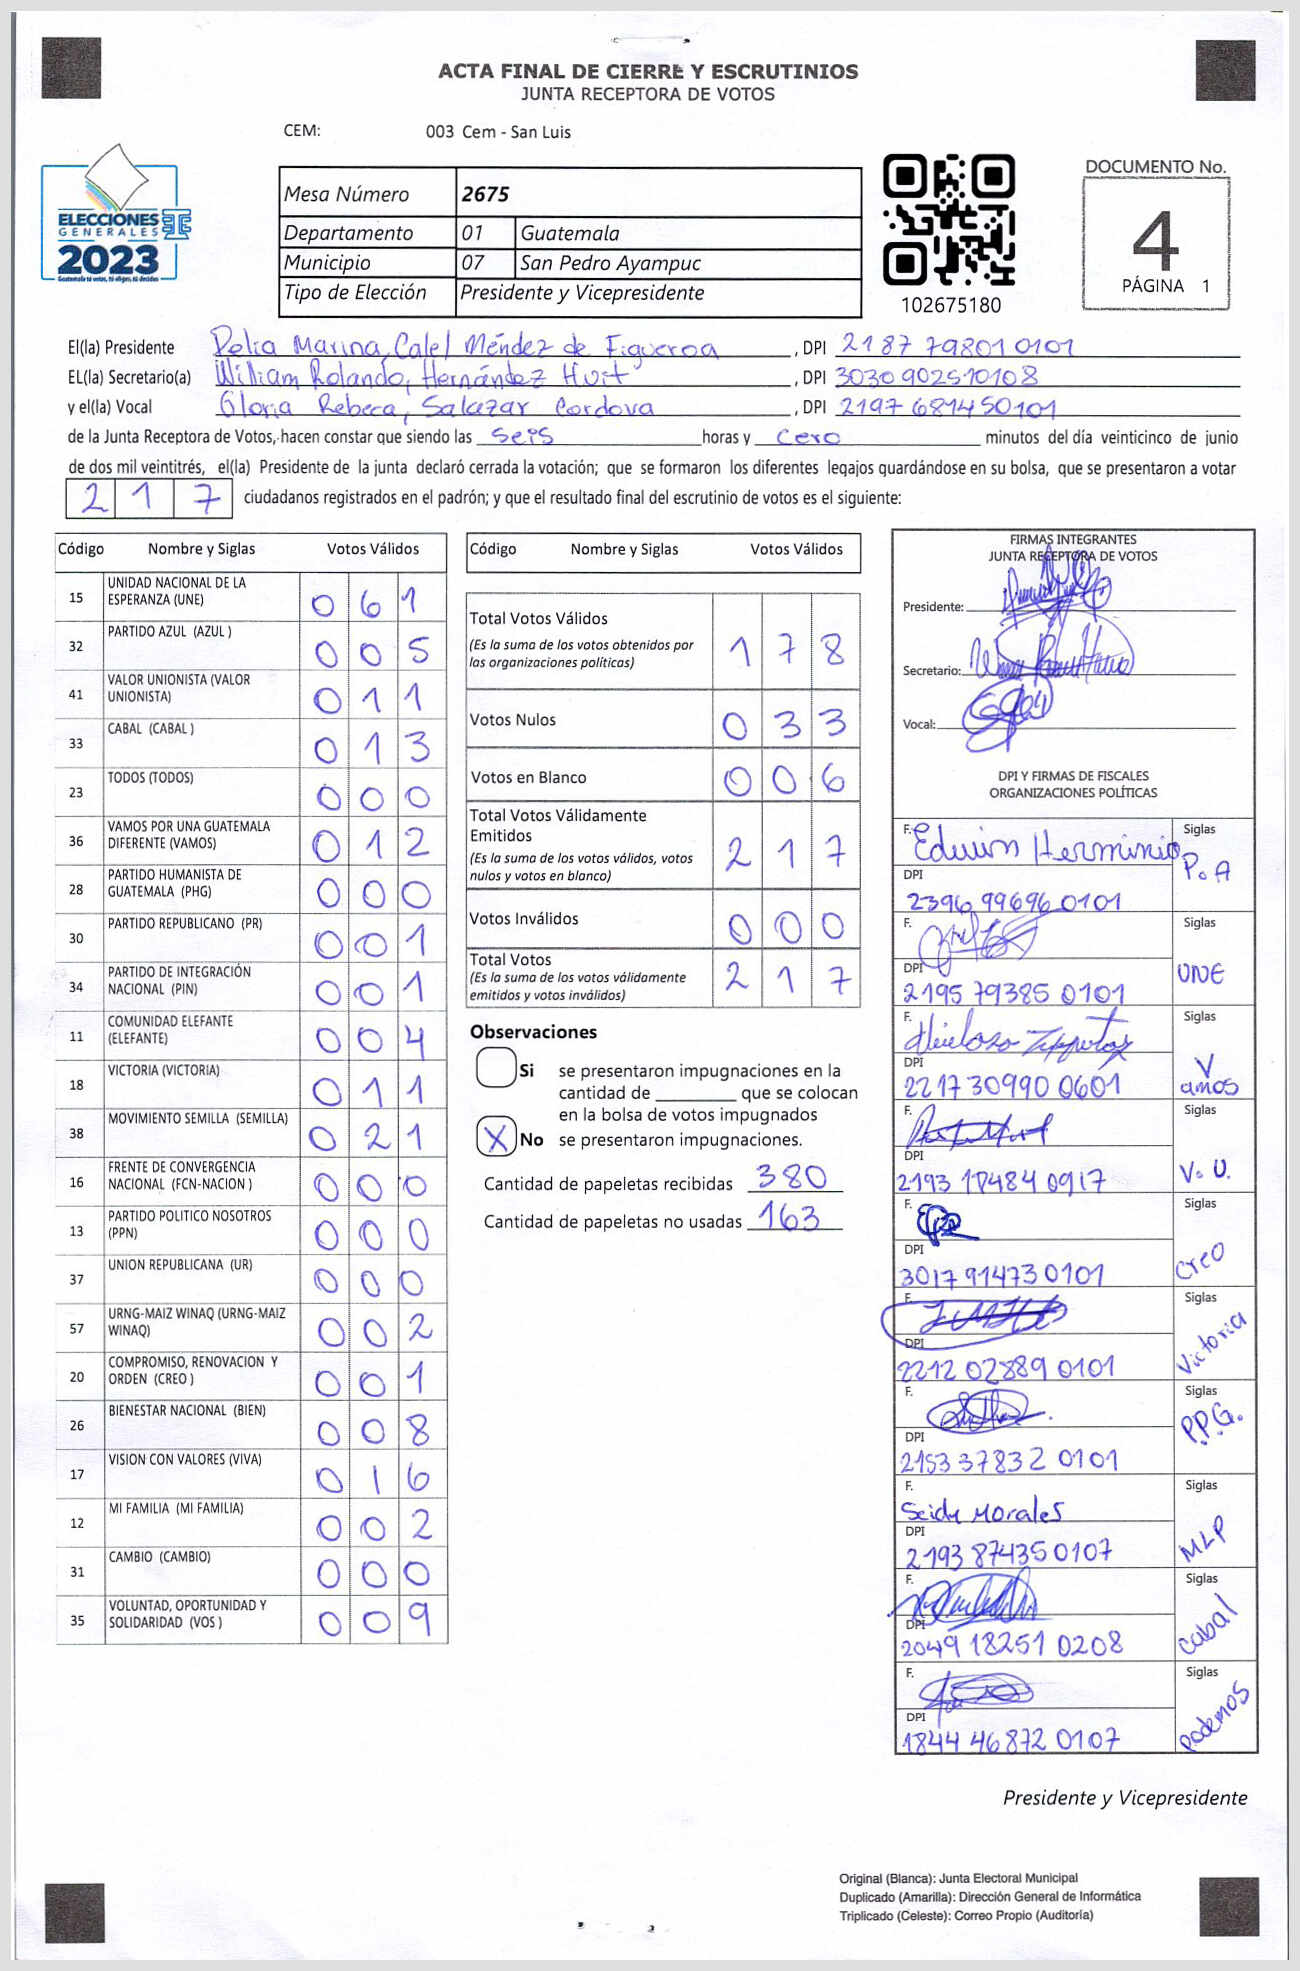 ACTA FINAL DE CIERRE Y ESCRUTINIOS
JUNTA RECEPTORA DE VOTOS
CEM: 003 Cem - San Luis
ELECCIONES
GENERALES
2023
Guatemala tú votas, tú eliges, tú decides
Mesa Número 2675
Departamento 01 Guatemala
Municipio 07 San Pedro Ayampuc
Tipo de Elección Presidente y Vicepresidente
102675180
DOCUMENTO No.
4
PÁGINA 1
El(la) Presidente Delia Marina, Calel Méndez de Figueroa, DPI 2187 79801 0101
EL(la) Secretario(a) William Rolando, Hernández Huit, DPI 3030 90251 0108
y el(la) Vocal Gloria Rebeca, Salazar Cordova, DPI 2197 68145 0101
de la Junta Receptora de Votos, hacen constar que siendo las seis horas y cero minutos del día veinticinco de junio
de dos mil veintitrés, el(la) Presidente de la junta declaró cerrada la votación; que se formaron los diferentes legajos guardándose en su bolsa, que se presentaron a votar
217 ciudadanos registrados en el padrón; y que el resultado final del escrutinio de votos es el siguiente:
Código Nombre y Siglas Votos Válidos
15 UNIDAD NACIONAL DE LA ESPERANZA (UNE) 061
32 PARTIDO AZUL (AZUL ) 005
41 VALOR UNIONISTA (VALOR UNIONISTA) 011
33 CABAL (CABAL ) 013
23 TODOS (TODOS) 000
36 VAMOS POR UNA GUATEMALA DIFERENTE (VAMOS) 012
28 PARTIDO HUMANISTA DE GUATEMALA (PHG) 000
30 PARTIDO REPUBLICANO (PR) 001
34 PARTIDO DE INTEGRACIÓN NACIONAL (PIN) 001
11 COMUNIDAD ELEFANTE (ELEFANTE) 004
18 VICTORIA (VICTORIA) 011
38 MOVIMIENTO SEMILLA (SEMILLA) 021
16 FRENTE DE CONVERGENCIA NACIONAL (FCN-NACION ) 000
13 PARTIDO POLITICO NOSOTROS (PPN) 000
37 UNION REPUBLICANA (UR) 000
57 URNG-MAIZ WINAQ (URNG-MAIZ WINAQ) 002
20 COMPROMISO, RENOVACION Y ORDEN (CREO ) 001
26 BIENESTAR NACIONAL (BIEN) 008
17 VISION CON VALORES (VIVA) 016
12 MI FAMILIA (MI FAMILIA) 002
31 CAMBIO (CAMBIO) 000
35 VOLUNTAD, OPORTUNIDAD Y SOLIDARIDAD (VOS ) 009
Código Nombre y Siglas Votos Válidos
Total Votos Válidos 178
(Es la suma de los votos obtenidos por
las organizaciones políticas)
Votos Nulos 033
Votos en Blanco 006
Total Votos Válidamente
Emitidos 217
(Es la suma de los votos válidos, votos
nulos y votos en blanco)
Votos Inválidos 000
Total Votos 217
(Es la suma de los votos válidamente
emitidos y votos inválidos)
Observaciones
Si se presentaron impugnaciones en la
cantidad de ________ que se colocan
en la bolsa de votos impugnados
X No se presentaron impugnaciones.
Cantidad de papeletas recibidas 380
Cantidad de papeletas no usadas 163
FIRMAS INTEGRANTES
JUNTA RECEPTORA DE VOTOS
Presidente:
Secretario:
Vocal:
DPI Y FIRMAS DE FISCALES
ORGANIZACIONES POLÍTICAS
F. Edwin Herminio Siglas P.A
DPI 2396 99696 0101
F. Siglas UNE
DPI 2195 79385 0101
F. Siglas Vamos
DPI 2217 30990 0601
F. Siglas V.U.
DPI 2193 18484 0917
F. Siglas Creo
DPI 3017 91473 0101
F. Siglas Victoria
DPI 2212 02889 0101
F. Siglas P.P.G.
DPI 2153 37832 0101
F. Seidy Morales Siglas MLP
DPI 2193 87435 0107
F. Siglas Cabal
DPI 2049 18251 0208
F. Siglas Podemos
DPI 1844 46872 0107
Presidente y Vicepresidente
Original (Blanca): Junta Electoral Municipal
Duplicado (Amarilla): Dirección General de Informática
Triplicado (Celeste): Correo Propio (Auditoría)